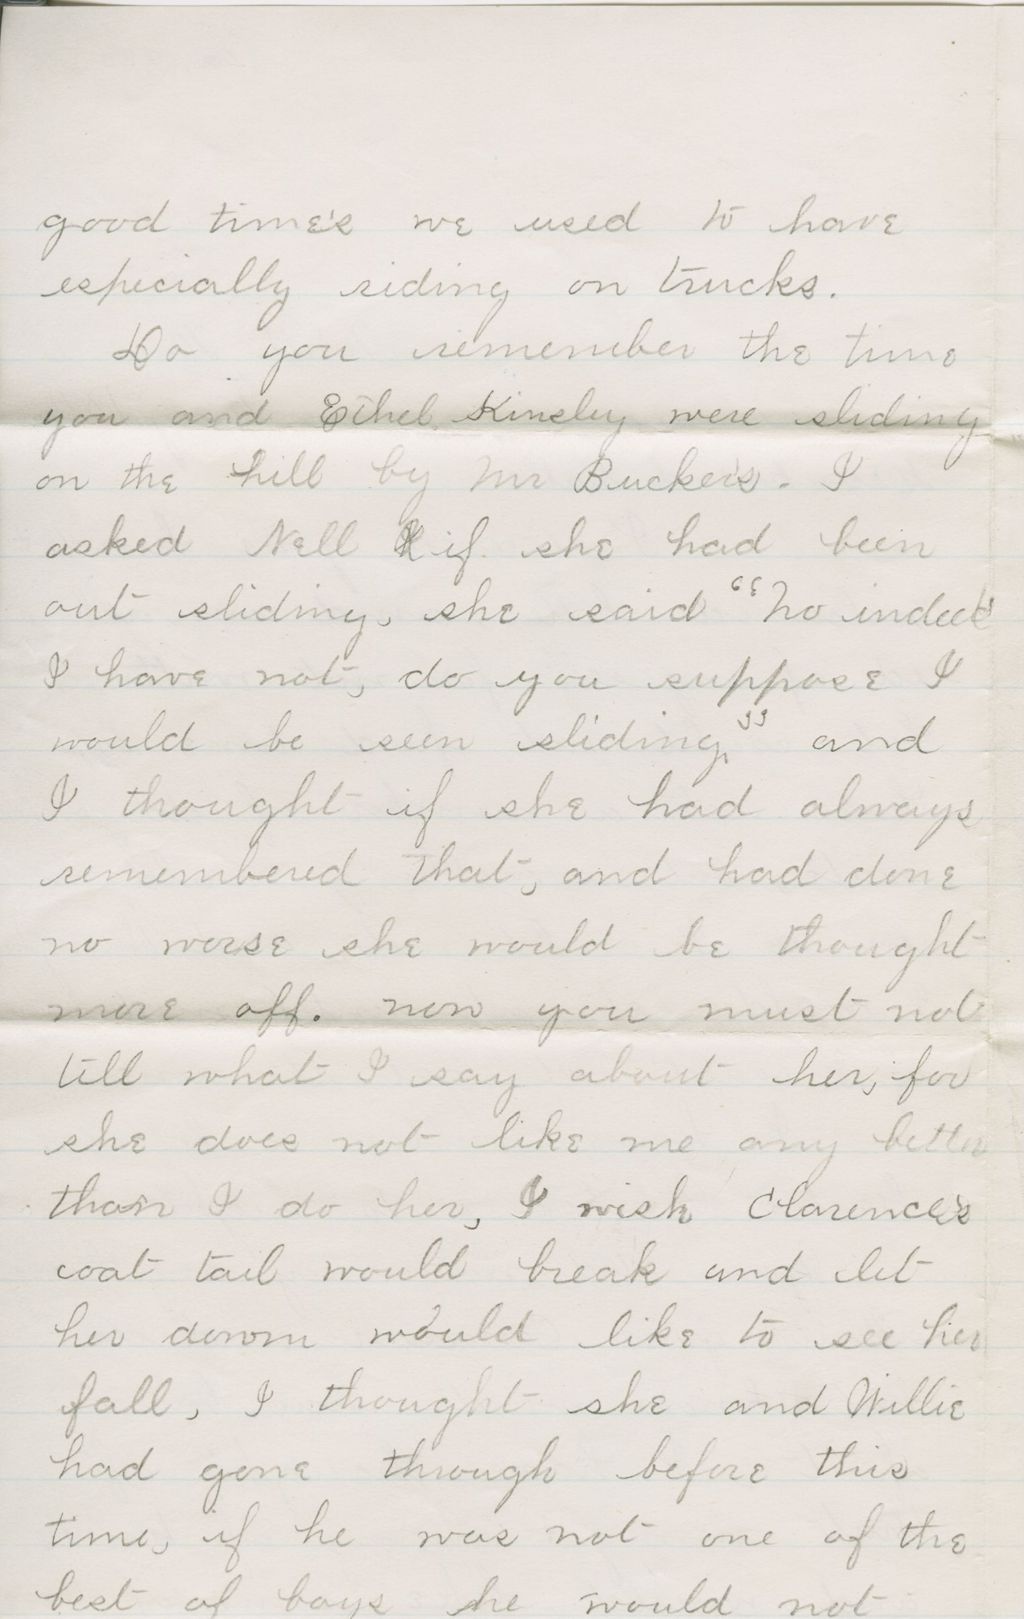 good time's we used to have
especially riding on trucks.
Do you remember the time
you and Ethel Kinsley were sliding
on the hill by Mr Bucker's. I
asked Nell if she had been
out sliding, she said "No indeed
I have not, do you suppose I
would be seen sliding," and
I thought if she had always
remembered that, and had done
no worse she would be thought
more off. now you must not
till what I say about her, for
she does not like me any better
than I do her, I wish Clarence's
coat tail would break and let
her down would like to see her
fall, I thought she and Willie
had gone through before this
time, if he was not one of the
best of boys he would not